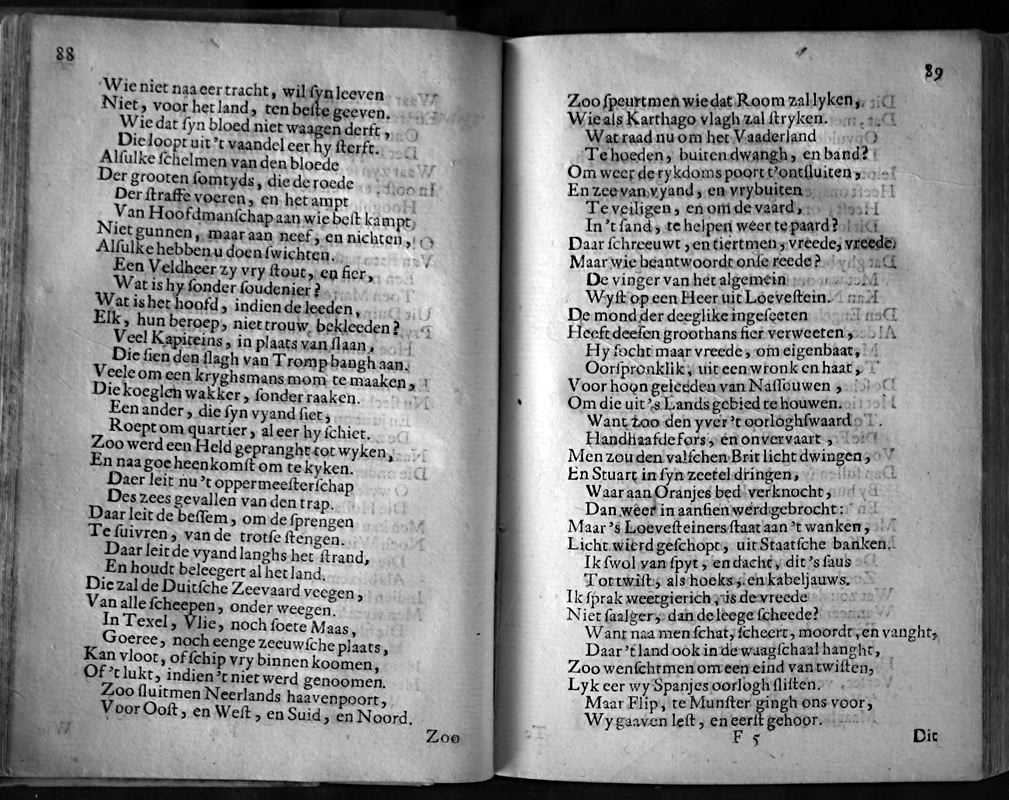 88
Wie niet naa eer tracht, wil ſyn leeven
Niet, voor het land, ten beſte geeven.
Wie dat ſyn bloed niet waagen derft,
Die loopt uit 't vaandel eer hy ſterft.
Alſulke ſchelmen van den bloede
Der grooten ſomtyds, die de roede
Der ſtraffe voeren, en het ampt
Van Hoofdmanſchap aan wie beſt kampt,
Niet gunnen, maar aan neef, en nichten,
Alſulke hebben u doen ſwichten.
Een Veldheer zy vry ſtout, en fier,
Wat is hy ſonder ſoudenier?
Wat is het hoofd, indien de leeden,
Elk, hun beroep, niet trouw bekleeden?
Veel Kapiteins, in plaats van ſlaan,
Die ſien den ſlagh van Tromp bangh aan.
Veele om een kryghsmans mom te maaken,
Die koeglen wakker, ſonder raaken.
Een ander, die ſyn vyand ſiet,
Roept om quartier, al eer hy ſchiet.
Zoo werd een Held gepranght tot wyken,
En naa goe heenkomſt om te kyken.
Daer leit nu 't oppermeeſterſchap
Des zees gevallen van den trap.
Daar leit de beſſem, om de ſprengen
Te ſuivren, van de trotſe ſtengen.
Daar leit de vyand langhs het ſtrand,
En houdt beleegert al het land.
Die zal de Duitſche Zeevaard veegen,
Van alle ſcheepen, onder weegen.
In Texel, Vlie, noch ſoete Maas,
Goeree, noch eenge zeeuwſche plaats,
Kan vloot, of ſchip vry binnen koomen,
Of 't lukt, indien 't niet werd genoomen.
Zoo ſluitmen Neerlands haavenpoort,
Voor Ooſt, en Weſt, en Suid, en Noord.
Zoo
89
Zoo ſpeurtmen wie dat Room zal lyken,
Wie als Karthago vlagh zal ſtryken.
Wat raad nu om het Vaaderland
Te hoeden, buiten dwangh, en band?
Om weer de rykdoms poort t'ontſluiten,
En zee van vyand, en vrybuiten
Te veiligen, en om de vaard,
In 't ſand, te helpen weer te paard?
Daar ſchreeuwt, en tiertmen, vreede, vreede.
Maar wie beantwoordt onſe reede?
De vinger van het algemein
Wyſt op een Heer uit Loeveſtein.
De mond der deeglike ingeſeeten
Heeft deeſen groothans fier verweeten,
Hy ſocht maar vreede, om eigenbaat,
Oorſpronklik, uit een wronk en haat,
Voor hoon geleeden van Naſſouwen,
Om die uit 's Lands gebied te houwen.
Want zoo den yver 't oorloghſwaard
Handhaafde fors, en onvervaart,
Men zou den valſchen Brit licht dwingen,
En Stuart in ſyn zeetel dringen,
Waar aan Oranjes bed verknocht,
Dan weer in aanſien werd gebrocht:
Maar 's Loeveſteiners ſtaat aan 't wanken,
Licht wierd geſchopt, uit Staatſche banken.
Ik ſwol van ſpyt, en dacht, dit 's ſaus
Tot twiſt, als hoeks, en kabeljauws.
Ik ſprak weetgierich, is de vreede
Niet ſaalger, dan de leege ſcheede?
Want naa men ſchat, ſcheert, moordt, en vanght,
Daar 't land ook in de waagſchaal hanght,
Zoo wenſchtmen om een eind van twiſten,
Lyk eer wy Spanjes oorlogh ſliſten.
Maar Flip, te Munſter gingh ons voor,
Wy gaaven leſt, en eerſt gehoor.
F 5
Dit